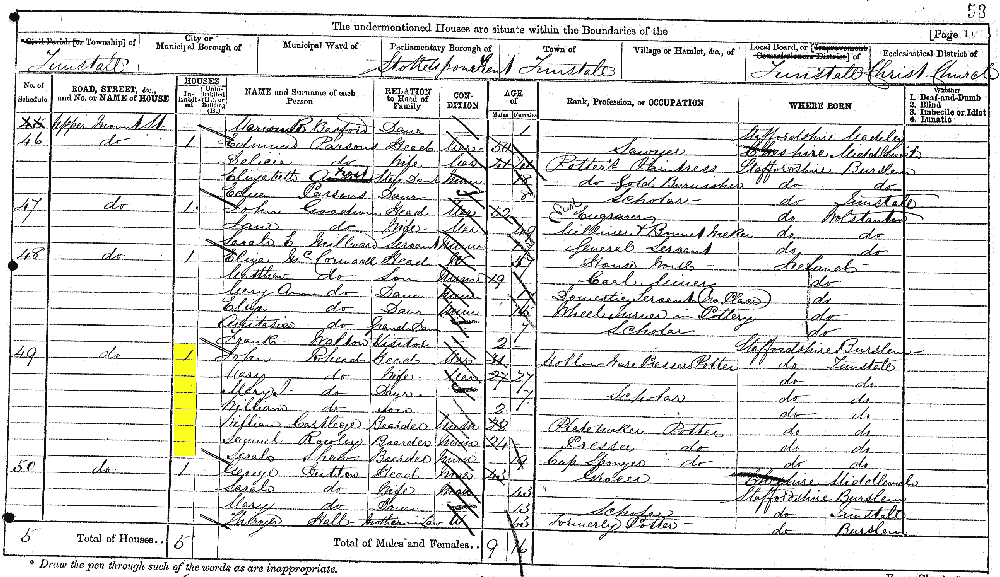 53
The undermentioned Houses are situate within the Boundaries of the
[Page 10
Civil Parish [or Township] of
City or Municipal Borough of
Municipal Ward of
Parliamentary Borough of
Town of
Village or Hamlet, &c., of
Local Board, or [Improvement Commissioners District] of
Ecclesiastical District of
Tunstall Stoke upon Trent Tunstall Tunstall Christ Church
No. of Schedule
ROAD, STREET, &c., and No. or NAME of HOUSE
HOUSES
In-habited
Uninhabited (U.), or Building (B.)
NAME and Surname of each Person
RELATION to Head of Family
CON-DITION
AGE of
Males
Females
Rank, Profession, or OCCUPATION
WHERE BORN
Whether
1. Deaf-and-Dumb
2. Blind
3. Imbecile or Idiot
4. Lunatic
Upper Daur 1 Staffordshire Madeley
46 do 1 Edmund Parsons Head Mar 54 Sawyer Middlewich
Felicia do Wife Mar Potter's Paintress Staffordshire Burslem
Elizabeth Daur do Gold Burnisher do do
Parsons Daur Scholar do Tunstall
47 do 1 John Goodwin Head Mar 42 Engraver do Wolstanton
Jane do Wife Mar Milliner & Bonnet Maker do do
Sarah E Millward Servant General Servant do do
48 do 1 Eliza Head W House Work Ireland
Matthew do Son 19 Coal Miner do
Mary Ann do Daur Domestic Servant (no Place) do
do Daur 16 Wheel Turner in Pottery do
do Grand Daur 7 Scholar do
Frank Walton Visitor 2 Staffordshire Burslem
49 do 1 John Rhead Head Mar Hollow Ware Presser Potter do Tunstall
Mary do Wife 27 do do
Mary J do Daur 7 Scholar do do
William do Son 2 do do
William Cartlidge Boarder 28 Plate Maker Potter do do
Samuel Rowley Boarder 24 Presser do do do
Sarah Shaw Boarder 19 Cup Sponger do do do
50 do 1 George Head Mar Grocer Middlewich
Sarah do Wife Mar 43 Staffordshire Burslem
Mary do Daur 13 Scholar do Tunstall
Hall Mother in Law W formerly Potter do Burslem
5 Total of Houses.. 5 Total of Males and Females.. 9 16
* Draw the pen through such of the words as are inappropriate.